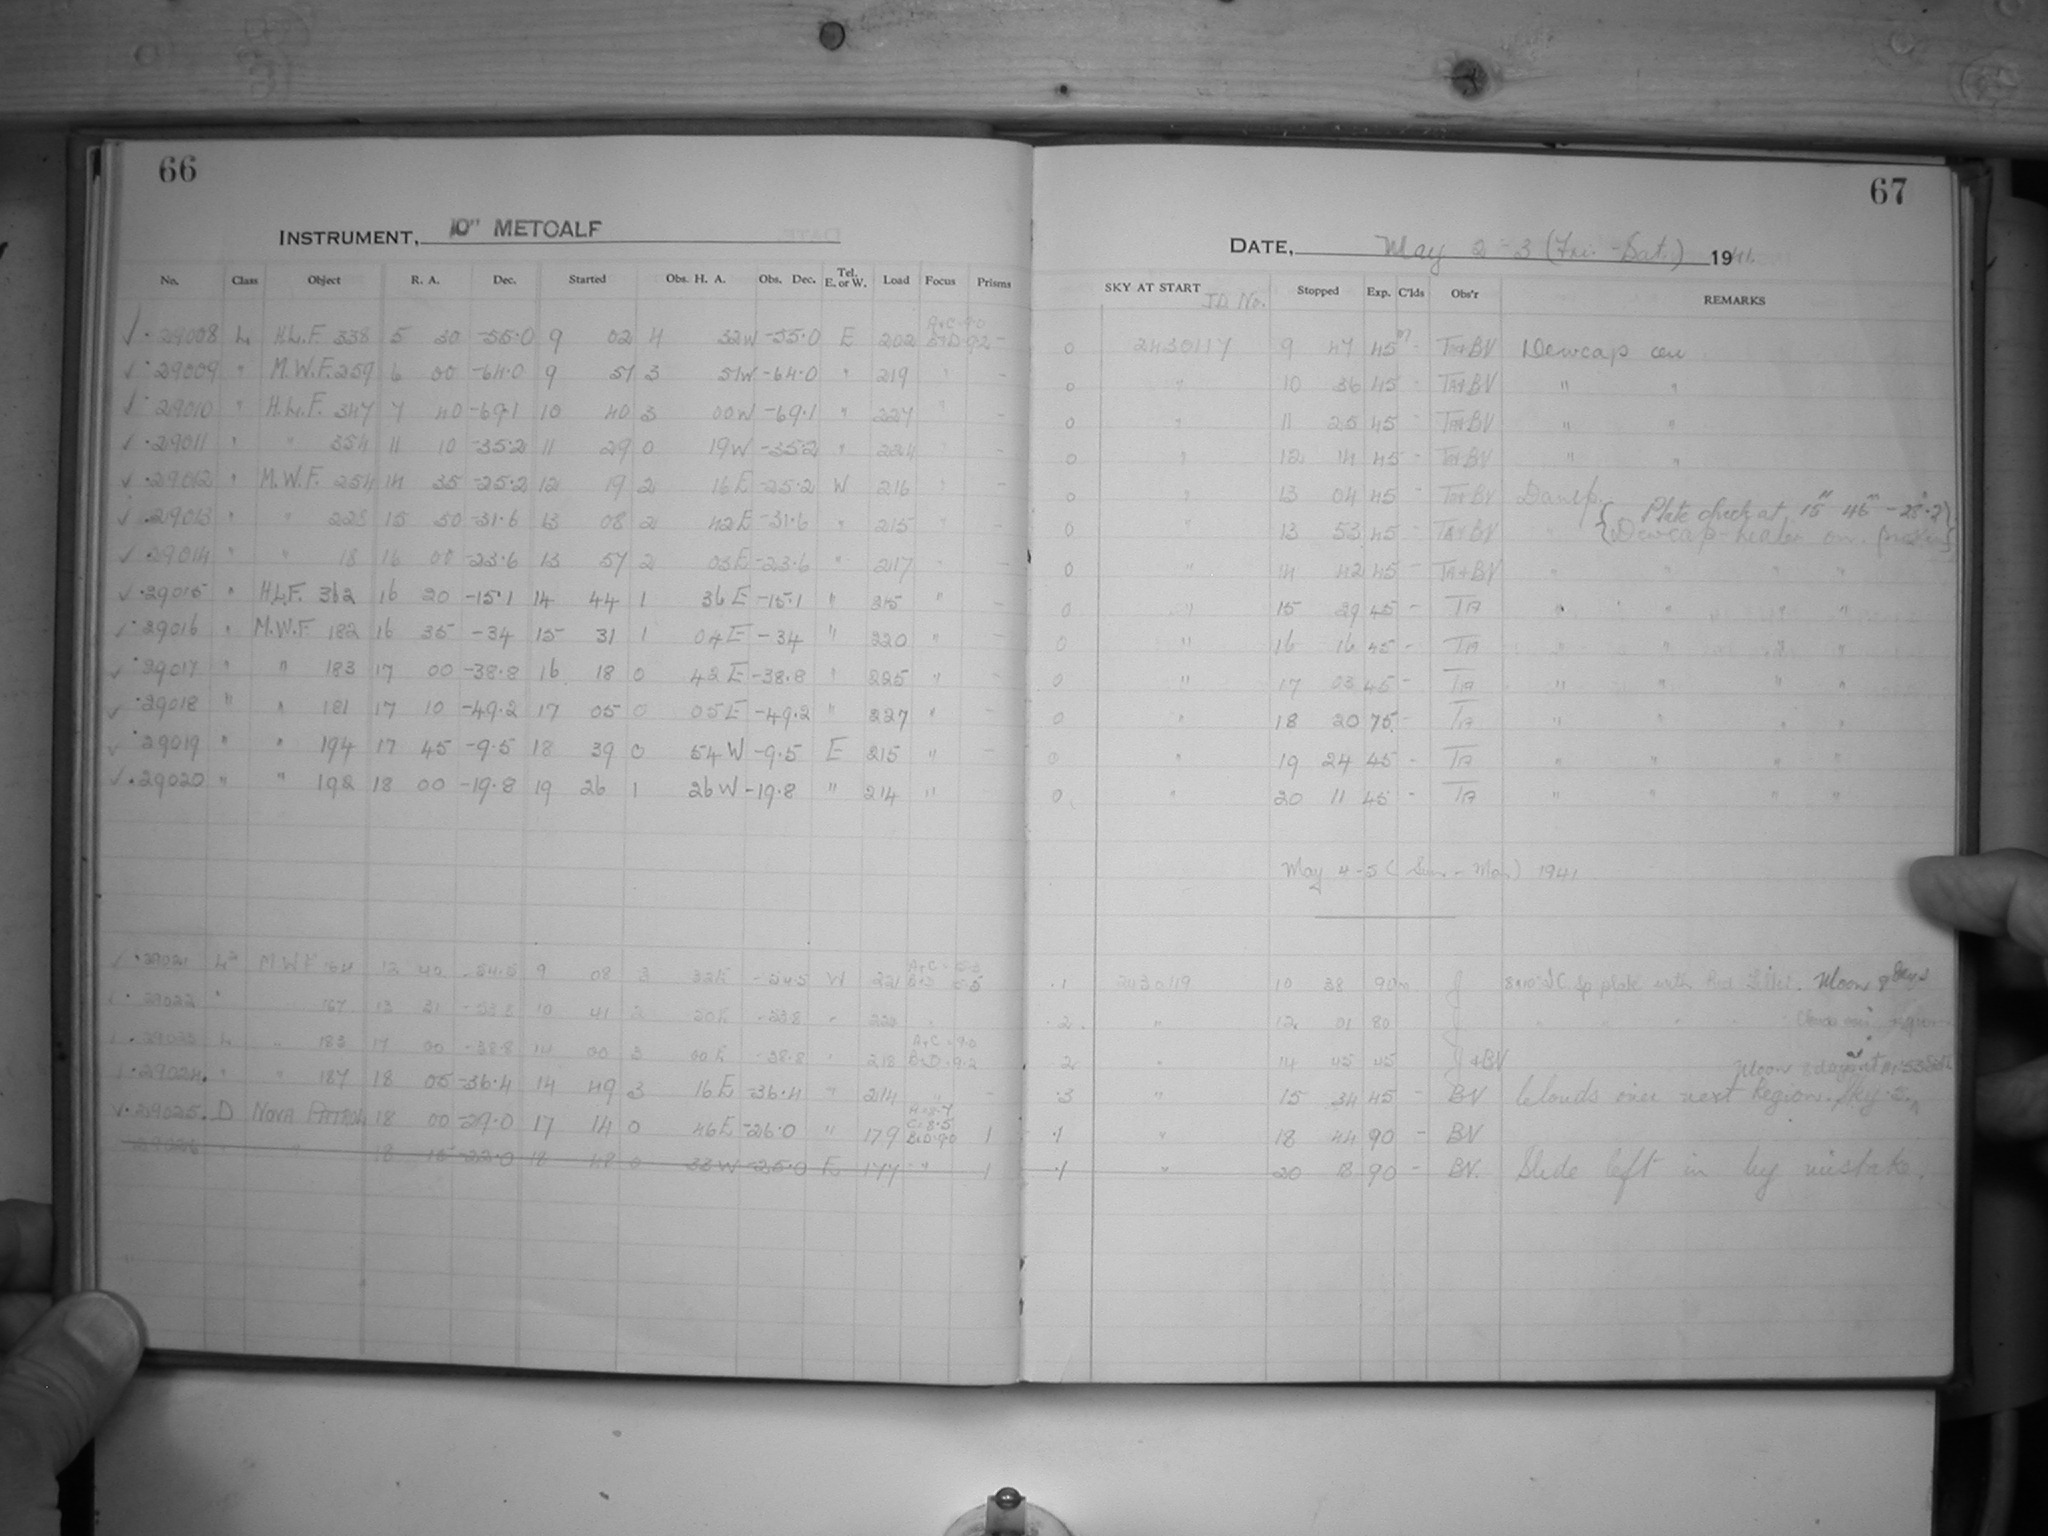 66
INSTRUMENT, 10" METCALF
No. Class Object R. A. Dec. Started Obs. H. A. Obs. Dec. Tel. E. or W. Load Focus Prisms
✓ · 29008 L H.L.F. 338 5 30 -55.0 9 02 4 32W -55.0 E 202 A+C 9.0 B+D 9.2 -
✓ · 29009 " M.W.F. 259 6 00 -64.0 9 51 3 51W -64.0 " 219 " -
✓ · 29010 " H.L.F. 347 7 40 -69.1 10 40 3 00W -69.1 " 227 " -
✓ · 29011 " " 354 11 10 -35.2 11 29 0 19W -35.2 " 224 " -
✓ · 29012 " M.W.F. 254 14 35 -25.2 12 19 2 16E -25.2 W 216 " -
✓ · 29013 " " 228 15 50 -31.6 13 08 2 42E -31.6 " 215 " -
✓ · 29014 " " 18 16 00 -23.6 13 57 2 03E -23.6 " 217 " -
✓ · 29015 " H.L.F. 362 16 20 -15.1 14 44 1 36E -15.1 " 215 " -
✓ · 29016 " M.W.F. 182 16 35 -34 15 31 1 04E -34 " 220 " -
✓ · 29017 " " 183 17 00 -38.8 16 18 0 42E -38.8 " 225 " -
✓ · 29018 " " 181 17 10 -49.2 17 05 0 05E -49.2 " 227 " -
✓ · 29019 " " 194 17 45 -9.5 18 39 0 54W -9.5 E 215 " -
✓ · 29020 " " 192 18 00 -19.8 19 26 1 26W -19.8 " 214 "
· 29021 M.W.F. 12 40 -54.5 9 08 3 32E -54.5 W 221 A+C
· 29022 " 167 13 31 -53.8 10 41 20E -53.8 " 220
· 29023 L " 183 17 00 -38.8 14 00 3 00E -38.8 " 218 A+C 9.0 B+D 9.2
· 29024. " " 187 18 05 -36.4 14 49 3 16E -36.4 " 214 " -
✓ · 29025. D NOVA 18 00 -29.0 17 14 0 46E -26.0 " 179 A 8.7 C 8.5 B+D 9.0 1
29026 " " 18 15 -22.0 18 48 0 33W -25.0 E 177 " 1
67
DATE, May 2-3 (Fri. - Sat.) 1941.
SKY AT START JD No. Stopped Exp. C'lds Obs'r REMARKS
0 2430117 9 47 45m - TA+BV Dewcap on
0 " 10 36 45 - TA+BV " "
0 " 11 25 45 - TA+BV " "
0 " 12 14 45 - TA+BV " "
0 " 13 04 45 - TA+BV
Plate check at 15h 46m -28.2
0 " 13 53 45 - TA+BV " Dewcap heater on.
0 " 14 42 45 - TA+BV " " " "
0 " 15 29 45 - TA " " " "
0 " 16 16 45 - TA " " " "
0 " 17 03 45 - TA " " " "
0 " 18 20 75 - TA " " " "
0 " 19 24 45 - TA " " " "
0 " 20 11 45 - TA " " " "
May 4-5 (Sun - Mon) 1941
.1 2430119 10 38 90m J 8x10 plate with Red Filter. Moon 8 days
.2 " 12 01 80 J
.2 " 14 45 45 J+BV
.3 " 15 34 45 - BV Clouds over next Region. Sky .5.
.1 " 18 44 90 - BV
.1 " 20 18 90 - BV. Slide left in by mistake.